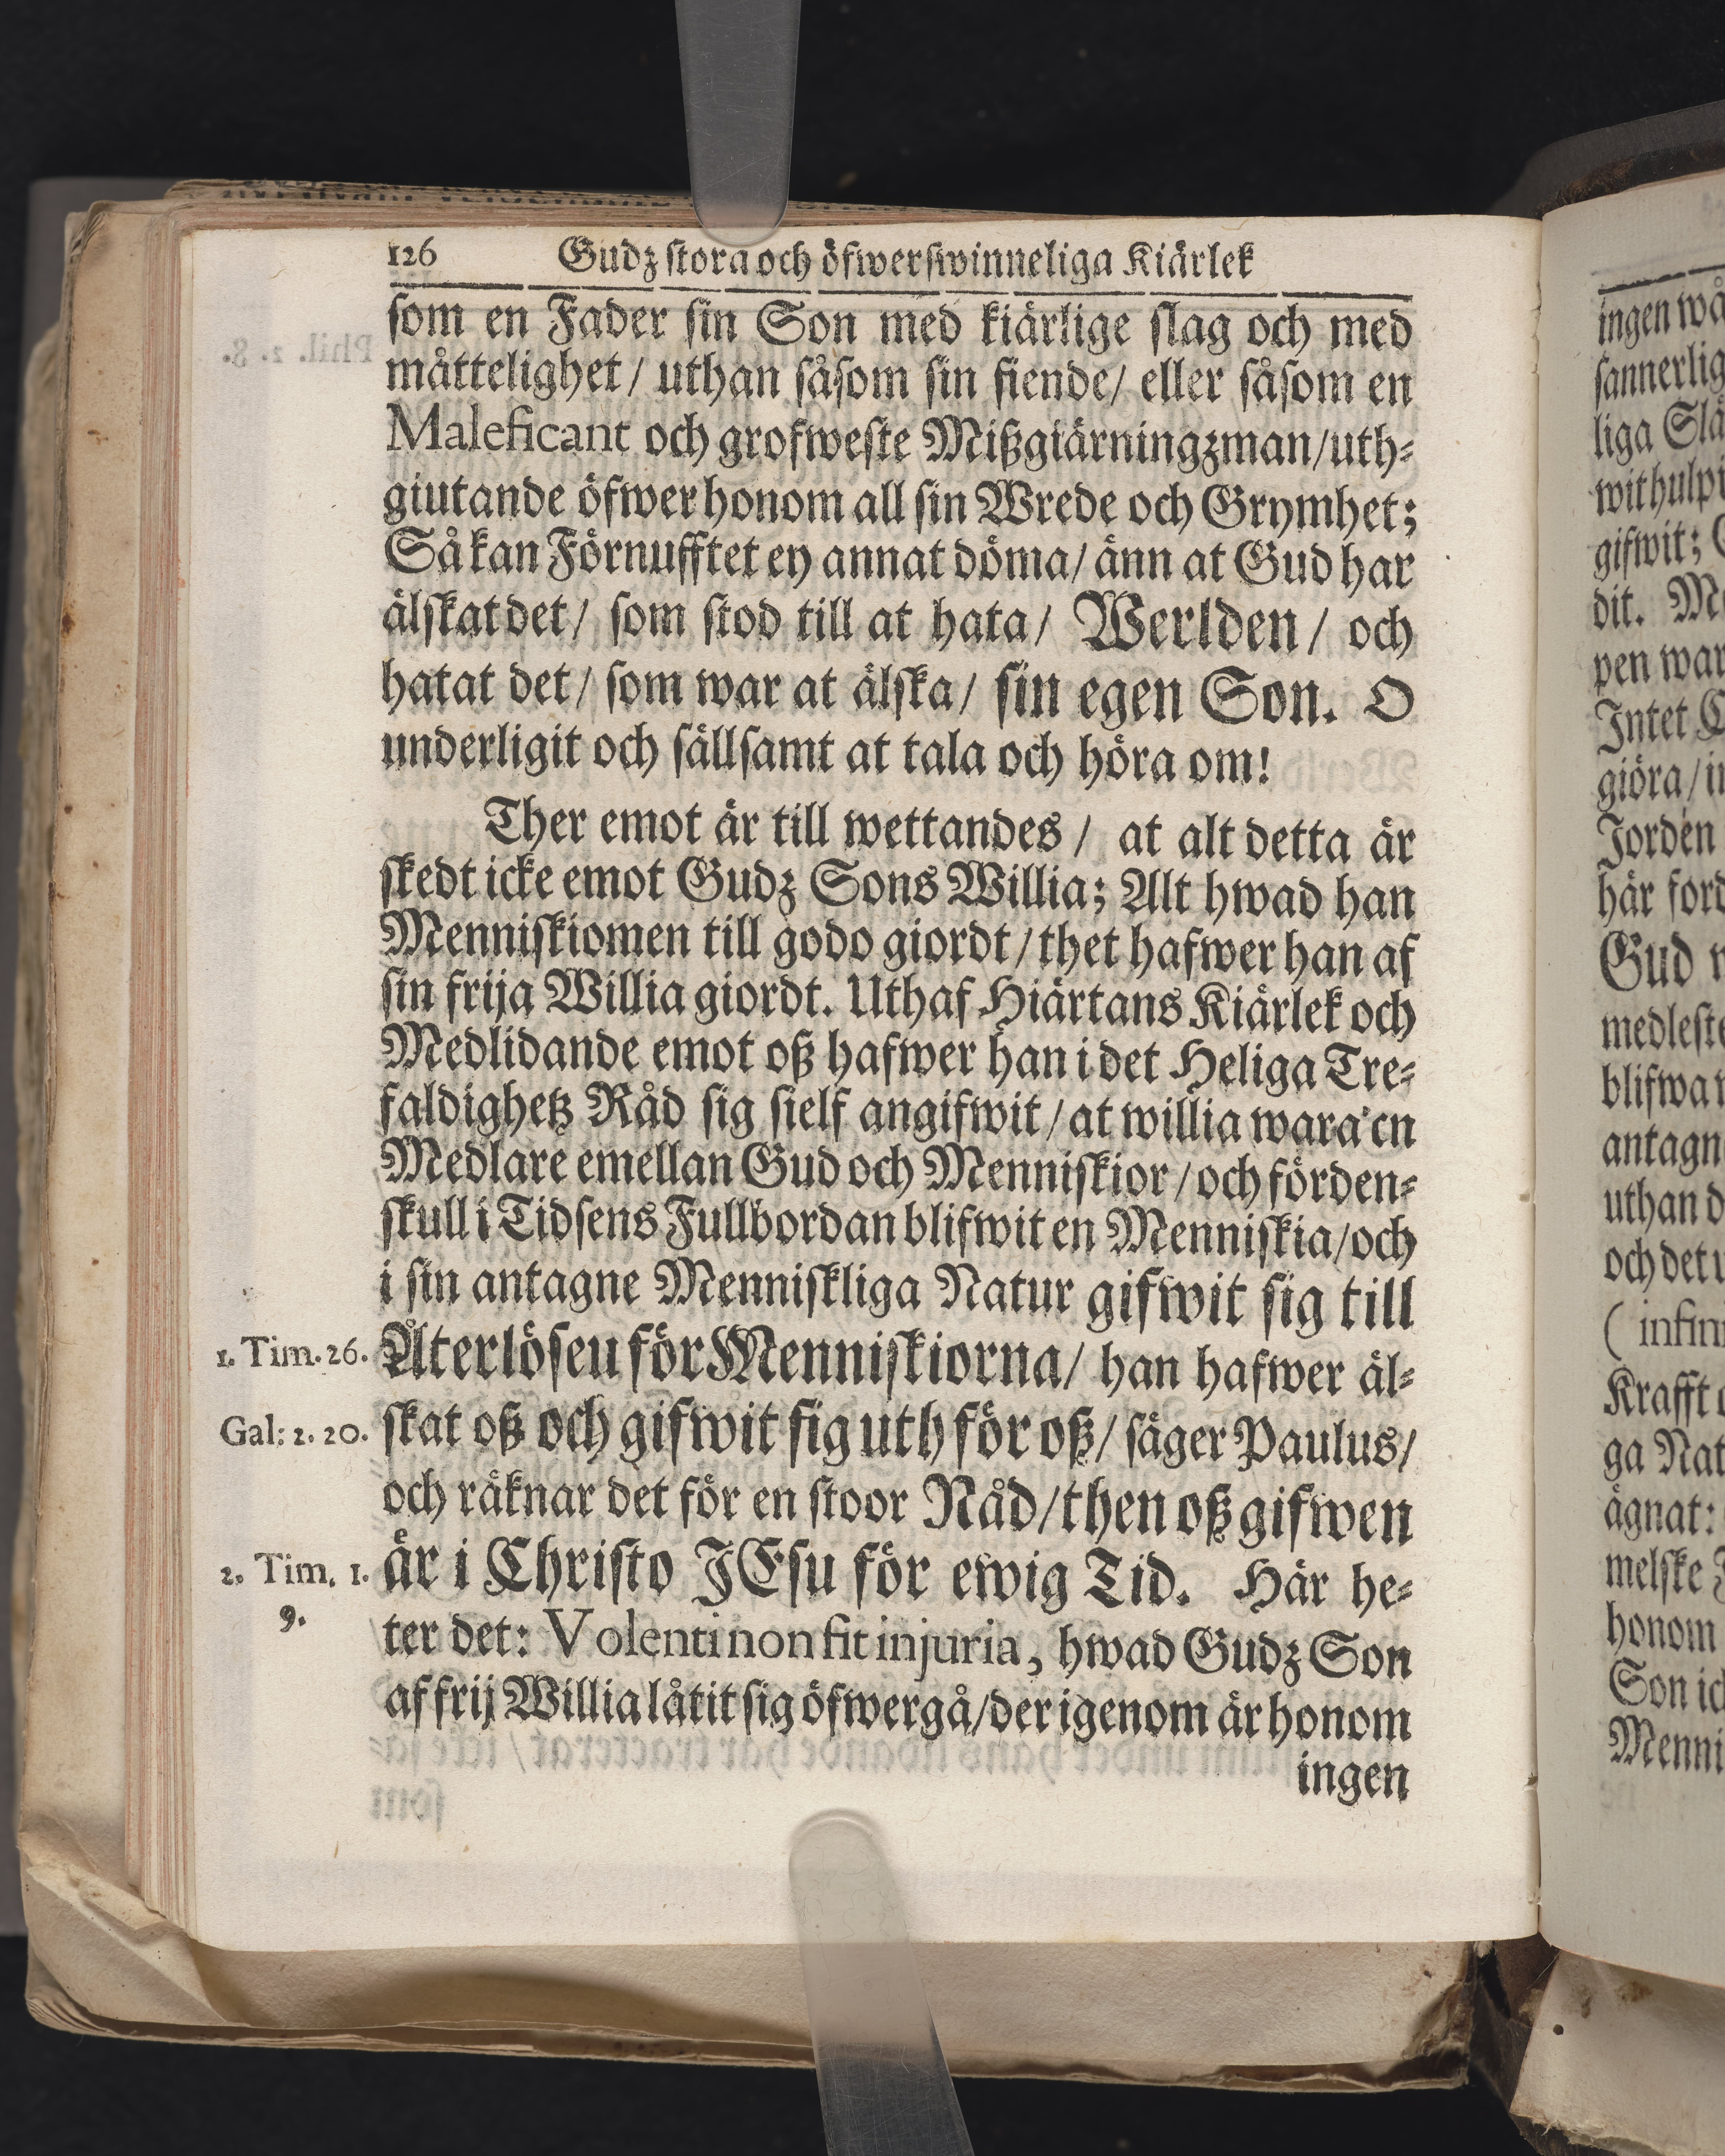 126 Gudz stora och öfwerswinneliga Kiärlek
som en Fader sin Son med kiärlige slag och med
måttelighet/ uthan såsom sin fiende/ eller såsom en
Maleficant och grofweste Mißgiärningzman/uth-
giutande öfwer honom all sin Wrede och Grymhet;
Så kan Förnufftet ey annat döma/ änn at Gud har
älskat det/ som stod till at hata/ Werlden/ och
hatat det/ som war at älska/ sin egen Son. O
underligit och sällsamt at tala och höra om!
Ther emot är till wettandes/ at alt detta är
skedt icke emot Gudz Sons Willia; Alt hwad han
Menniskiomen till godo giordt/ thet hafwer han af
sin frija Willia giordt. Uthaf Hiärtans Kiärlek och
Medlidande emot oß hafwer han i det Heliga Tre-
faldighetz Råd sig sielf angifwit/ at willia wara en
Medlare emellan Gud och Menniskior/ och förden-
skull i Tidsens Fullbordan blifwit en Menniskia/och
i sin antagne Menniskliga Natur gifwit sig till
1. Tim. 26. Återlöseu för Menniskiorna/ han hafwer äl-
Gal: 2. 20. skat oß och gifwit sig uth för oß/ säger Paulus/
och räknar det för en stoor Nåd/then oß gifwen
2. Tim. 1. är i Christo JEsu för ewig Tid. Här he-
9. ter det: Volenti non fit injuria, hwad Gudz Son
af frij Willia låtit sig öfwergå/der igenom är honom
ingen
ingen wå
sannerlig
liga Slä
wit hulpi
gifwit;
dit.
pen war
Intet
giöra/
Jorden
här ford
Gud
medleste
blifwa
antagn
uthan d
och det
( infin
Krafft
ga Nat
ägnat:
melske
honom
Son ick
Menni